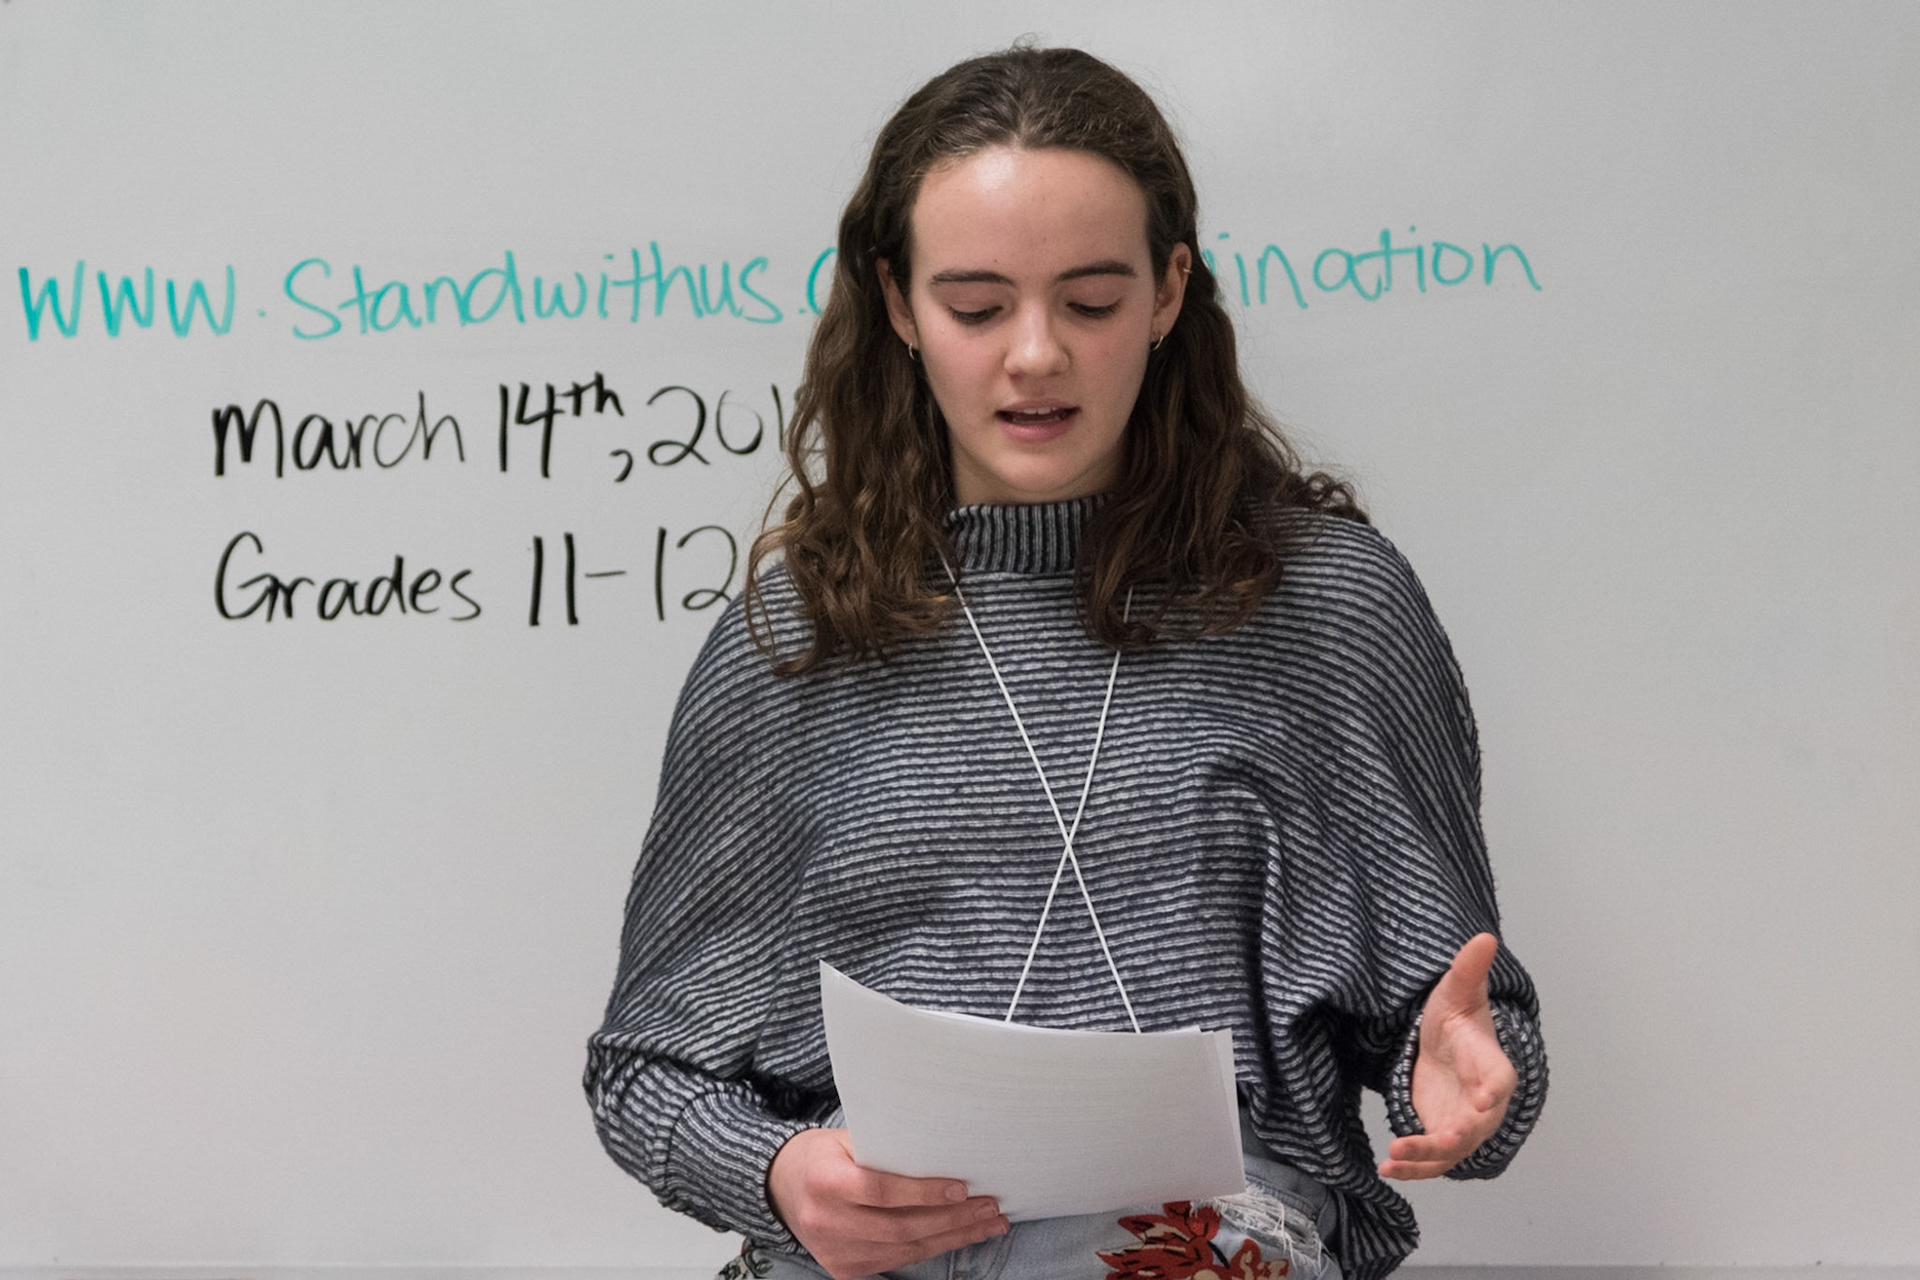 www.Standwithus.
March 14th, 201
Grades 11-12